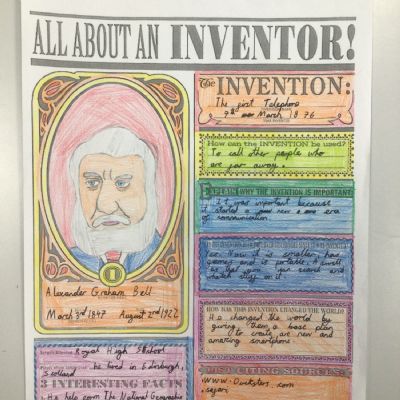 ALL ABOUT AN INVENTOR!
The INVENTION:
The first Telephone
7th March 1876
How can the INVENTION be used?
To call other people who
are far away.
EXPLAIN WHY THE INVENTION IS IMPORTANT
It was important because
it started a new era
of communication.
Yes. Now it is smaller, has
games and is portable. As well
as that you can search and
watch stuff on it
HOW HAS THIS INVENTION CHANGED THE WORLD?
He changed the world by
giving them a base plan
to create are new and
amazing smartphone
LIST CITING SOURCES:
www.Ducksters.com
.safari
Alexander Graham Bell
March 3rd 1847 August 2nd 1922
Royal High School
he lived in Edinburgh,
Scotland
3 INTERESTING FACTS
. He help form The National Geographic